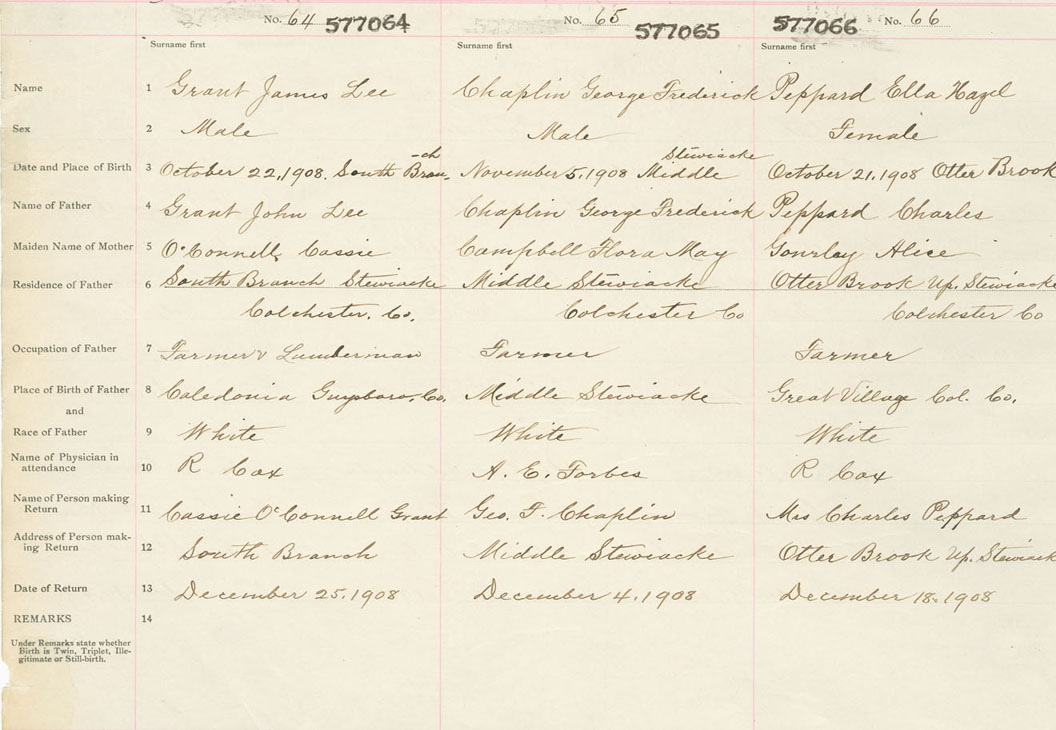 No. 64 577064 No. 65 577065 577066 No. 66
Surname first Surname first Surname first
Name 1 Grant James Lee Chaplin George Frederick Peppard Ella Hazel
Sex 2 Male Male Female
-ch Stewiacke
Date and Place of Birth 3 October 22, 1908. South Bran- November 5, 1908 Middle October 21, 1908 Otter Brook
Name of Father 4 Grant John Lee Chaplin George Frederick Peppard Charles
Maiden Name of Mother 5 O'Connell, Cassie Campbell Flora May Gourlay Alice
Residence of Father 6 South Branch Stewiacke Middle Stewiacke Otter Brook Up. Stewiacke
Colchester. Co. Colchester Co Colchester Co
Occupation of Father 7 Farmer & Lumberman Farmer Farmer
Place of Birth of Father 8 Caledonia Guysboro. Co. Middle Stewiacke Great Village Col. Co.
and
Race of Father 9 White White White
Name of Physician in
attendance 10 R Cox A. E. Forbes R Cox
Name of Person making
Return 11 Cassie O'Connell Grant Geo. F. Chaplin Mrs Charles Peppard
Address of Person mak-
ing Return 12 South Branch Middle Stewiacke Otter Brook Up. Stewiack
Date of Return 13 December 25, 1908 December 4, 1908 December 18, 1908
REMARKS 14
Under Remarks state whether
Birth is Twin, Triplet, Ille-
gitimate or Still-birth.